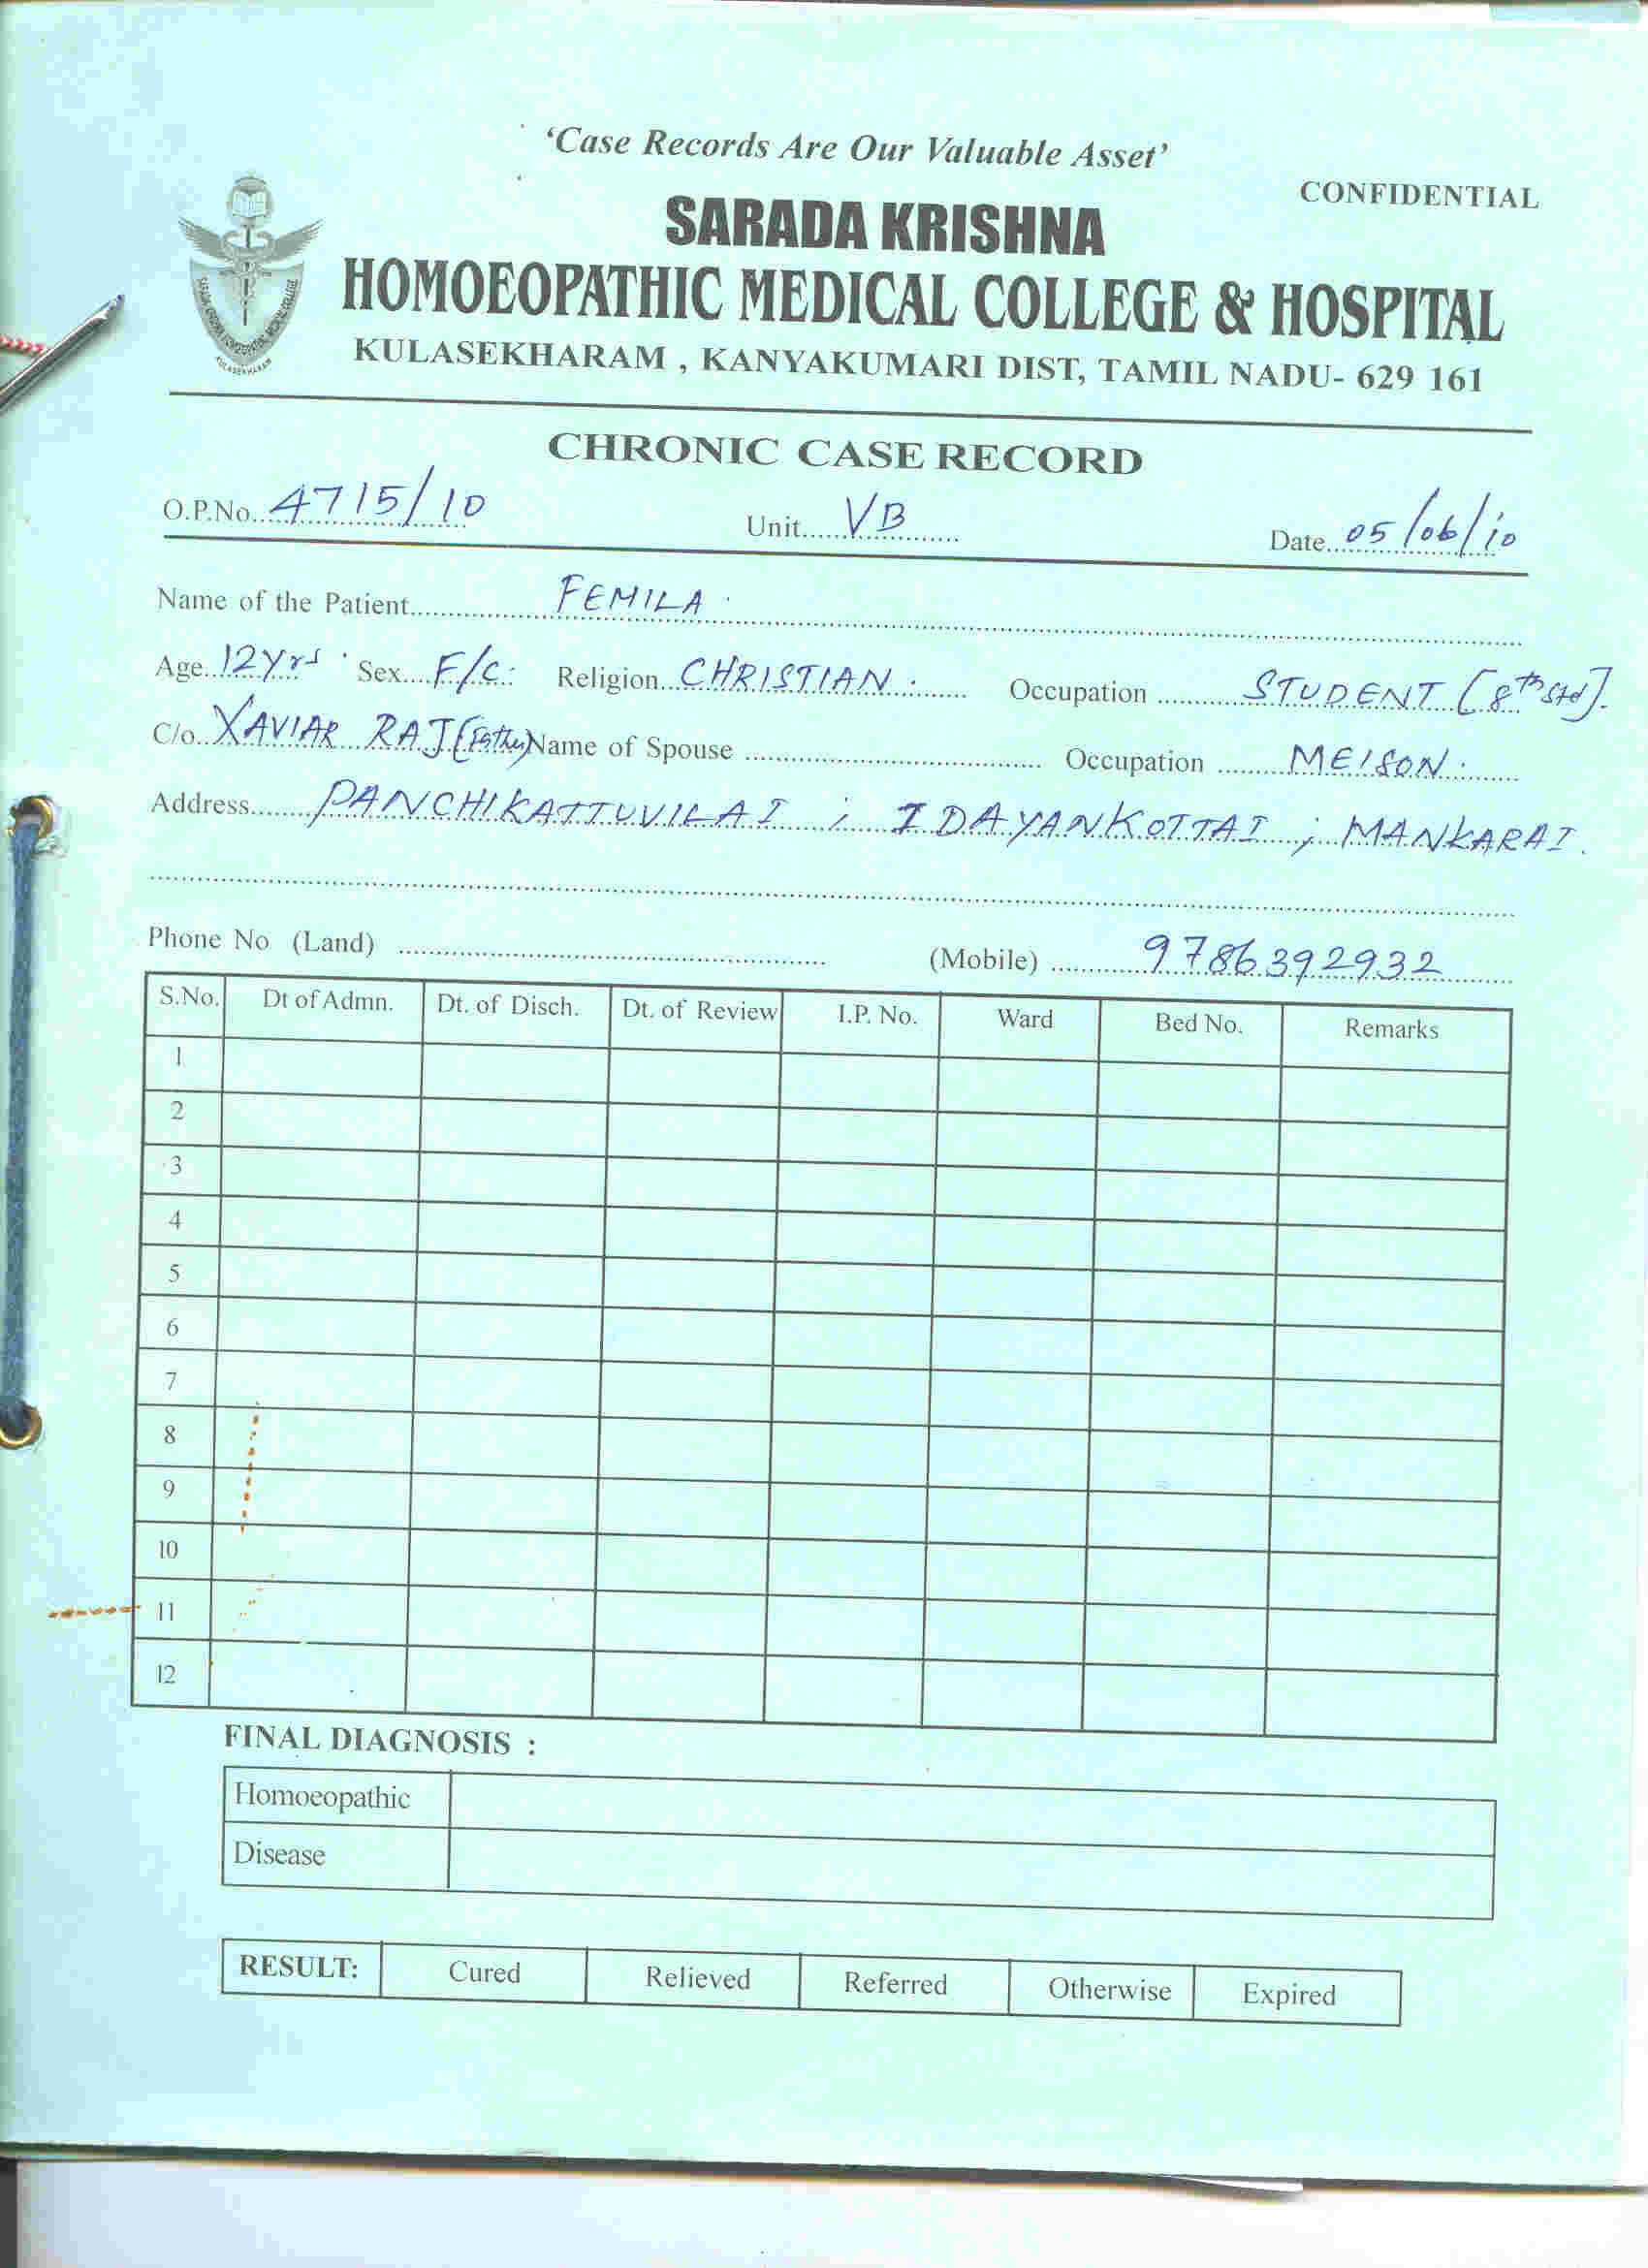 ‘Case Records Are Our Valuable Asset’
CONFIDENTIAL
SARADA KRISHNA
HOMOEOPATHIC MEDICAL COLLEGE & HOSPITAL
KULASEKHARAM
KULASEKHARAM , KANYAKUMARI DIST, TAMIL NADU- 629 161
CHRONIC CASE RECORD
O.P.No. 4715/10 Unit VB Date 05/06/10
Name of the Patient FEMILA
Age 12Yrs Sex F/C Religion CHRISTIAN Occupation STUDENT [8th Std].
C/o XAVIAR RAJ (Father) Name of Spouse Occupation MEISON.
Address PANCHIKATTUVILAI ; IDAYANKOTTAI ; MANKARAI.
Phone No (Land) (Mobile) 9786392932
S.No. Dt of Admn. Dt. of Disch. Dt. of Review I.P. No. Ward Bed No. Remarks
1
2
3
4
5
6
7
8
9
10
11
12
FINAL DIAGNOSIS :
Homoeopathic
Disease
RESULT: Cured Relieved Referred Otherwise Expired